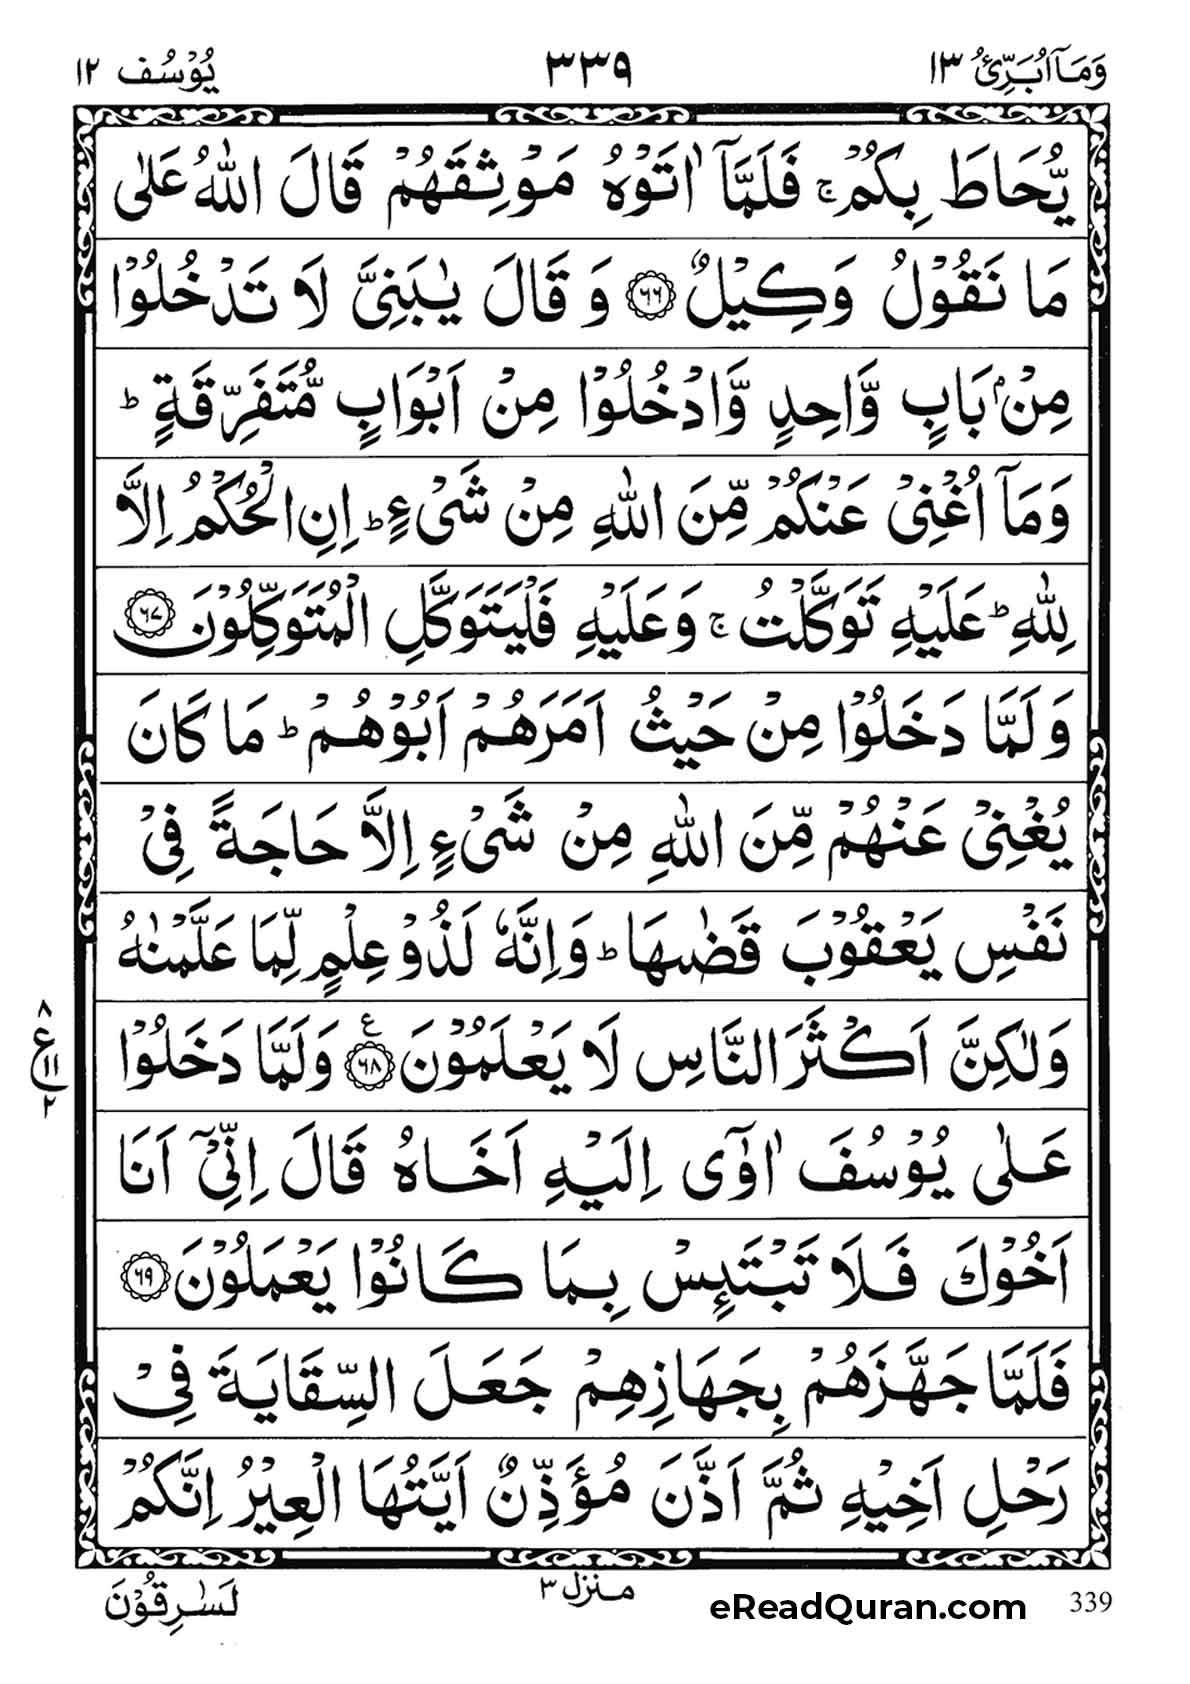 وَمَآ اُبَرِّئُ ١٣
٣٣٩
يُوْسُف ١٢
يُّحَاطَ بِكُمْ ۚ فَلَمَّآ اٰتَوْهُ مَوْثِقَهُمْ قَالَ اللّٰهُ عَلٰى
مَا نَقُوْلُ وَكِيْلٌ ﴿٦٦﴾ وَ قَالَ يٰبَنِىَّ لَا تَدْخُلُوْا
مِنْۢ بَابٍ وَّاحِدٍ وَّادْخُلُوْا مِنْ اَبْوَابٍ مُّتَفَرِّقَةٍ ؕ
وَمَآ اُغْنِىْ عَنْكُمْ مِّنَ اللّٰهِ مِنْ شَىْءٍ ؕ اِنِ الْحُكْمُ اِلَّا
لِلّٰهِ ؕ عَلَيْهِ تَوَكَّلْتُ ۚ وَعَلَيْهِ فَلْيَتَوَكَّلِ الْمُتَوَكِّلُوْنَ ﴿٦٧﴾
وَلَمَّا دَخَلُوْا مِنْ حَيْثُ اَمَرَهُمْ اَبُوْهُمْ ؕ مَا كَانَ
يُغْنِىْ عَنْهُمْ مِّنَ اللّٰهِ مِنْ شَىْءٍ اِلَّا حَاجَةً فِىْ
نَفْسِ يَعْقُوْبَ قَضٰىهَا ؕ وَاِنَّهٗ لَذُوْ عِلْمٍ لِّمَا عَلَّمْنٰهُ
وَلٰكِنَّ اَكْثَرَ النَّاسِ لَا يَعْلَمُوْنَ ﴿٦٨﴾ ع وَلَمَّا دَخَلُوْا
٨
ع
١١
٢
عَلٰى يُوْسُفَ اٰوٰٓى اِلَيْهِ اَخَاهُ قَالَ اِنِّىْۤ اَنَا
اَخُوْكَ فَلَا تَبْتَئِسْ بِمَا كَانُوْا يَعْمَلُوْنَ ﴿٦٩﴾
فَلَمَّا جَهَّزَهُمْ بِجَهَازِهِمْ جَعَلَ السِّقَايَةَ فِىْ
رَحْلِ اَخِيْهِ ثُمَّ اَذَّنَ مُؤَذِّنٌ اَيَّتُهَا الْعِيْرُ اِنَّكُمْ
لَسٰرِقُوْنَ
منزل ٣
eReadQuran.com
339